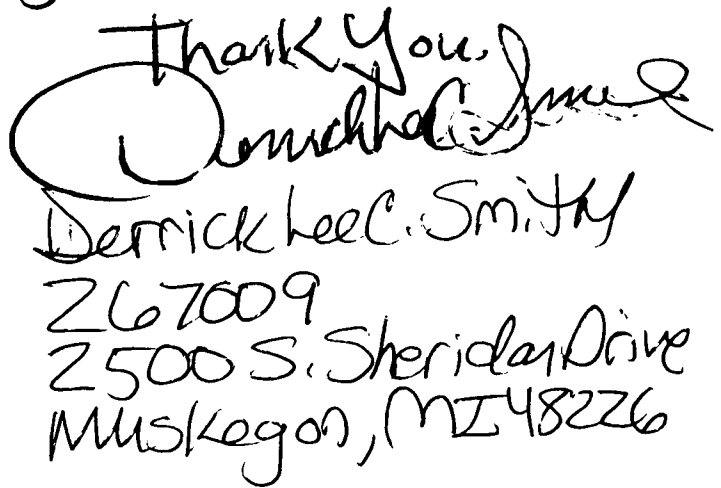 Thank You,
Derrick Lee C. Smith
Derrick Lee C. Smith
267009
2500 S. Sheridan Drive
Muskegon, MI 48226